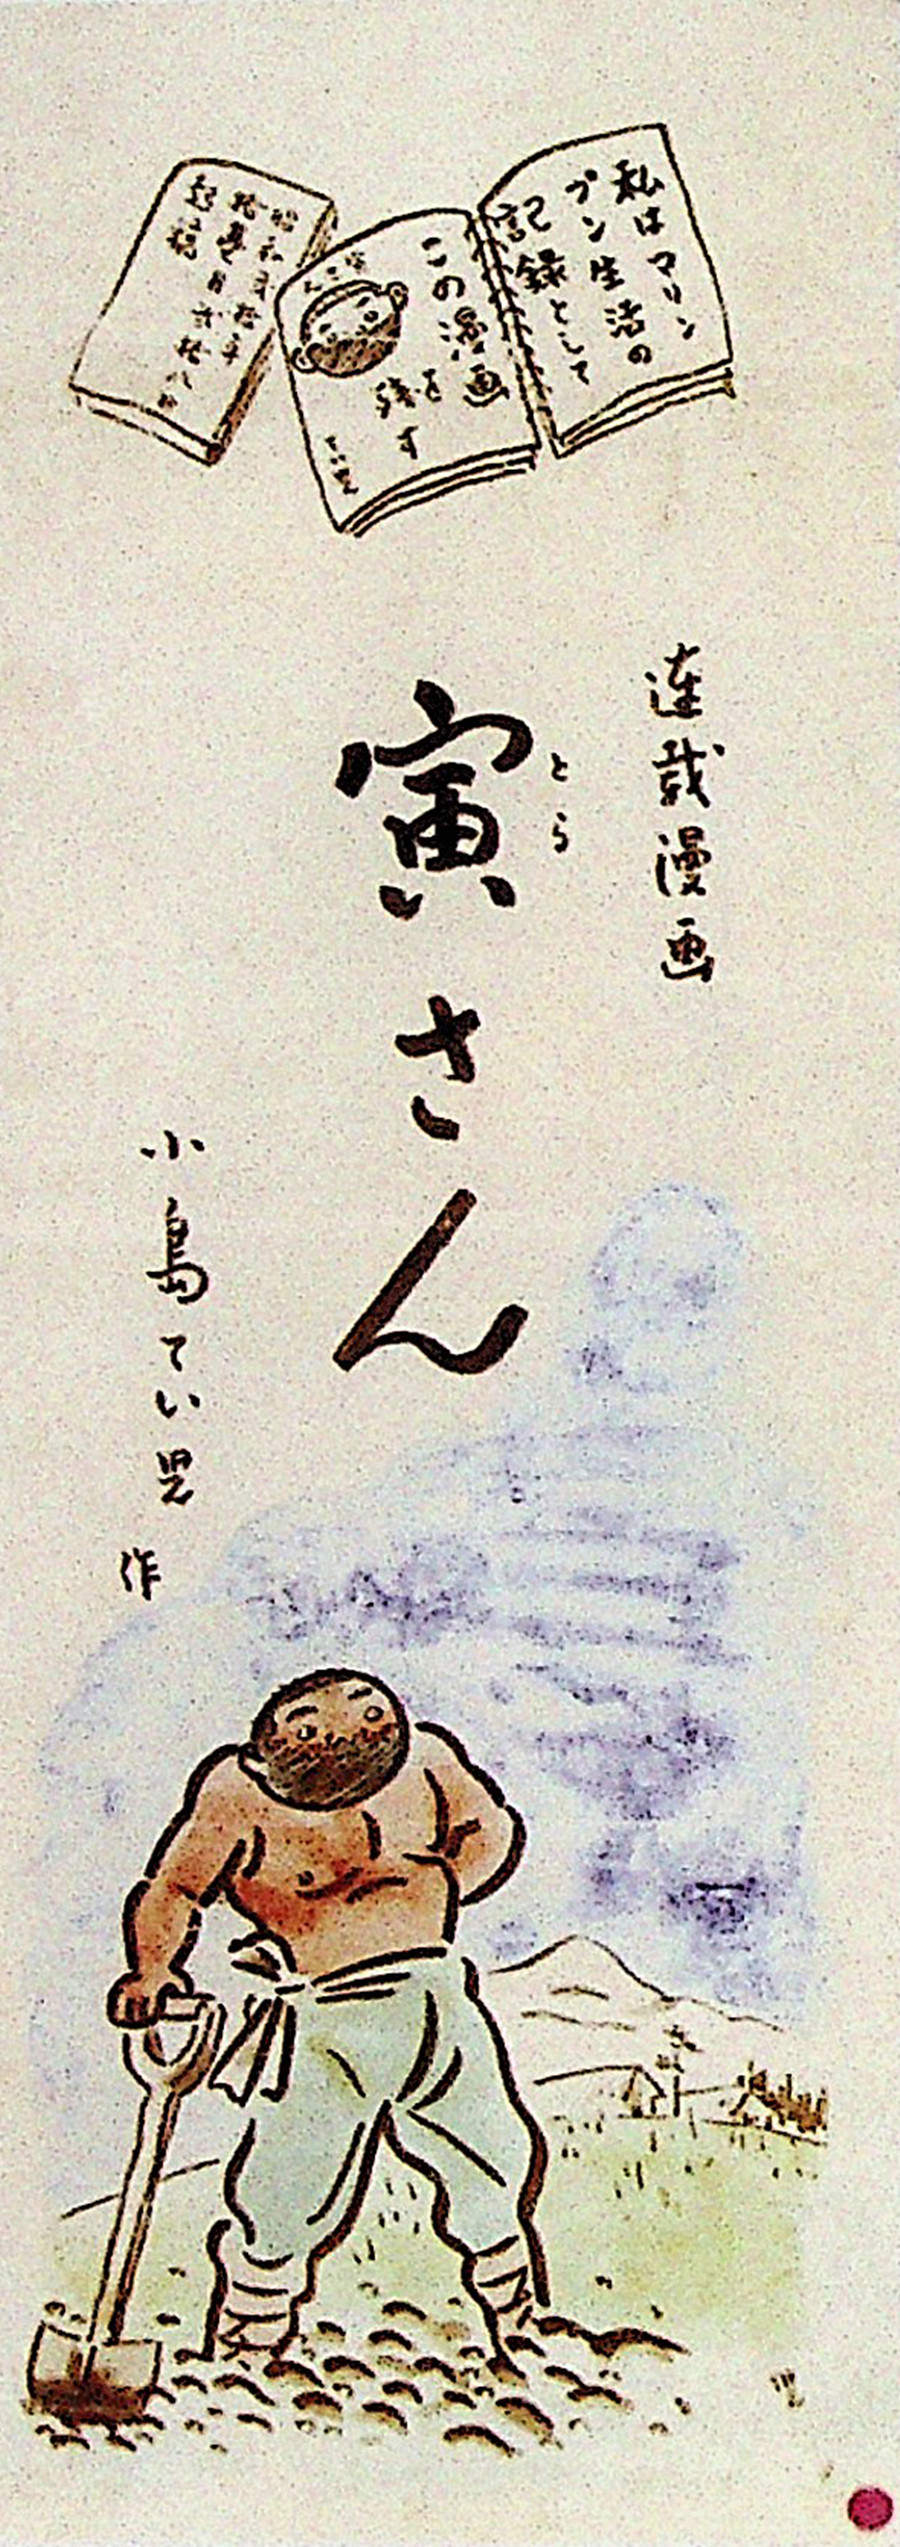 私はマリン
プン生活の
記録として
この漫画
を
残す
てい児
寅さん
連載漫画
寅さん
とら
小島てい児
作